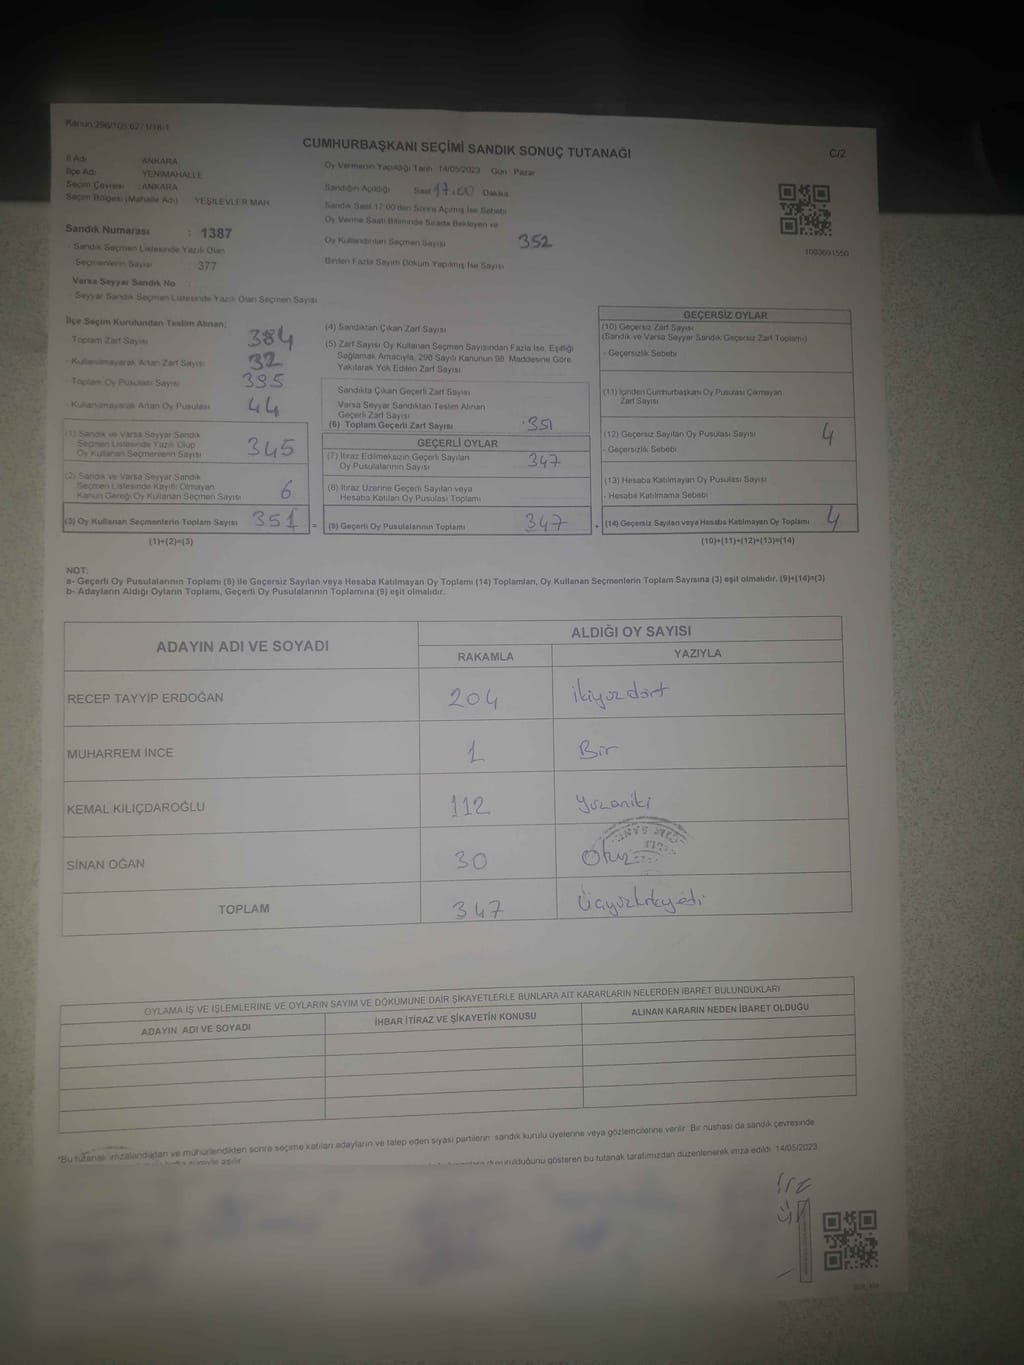 Kanun:298/105,6271/18-1
CUMHURBAŞKANI SEÇİMİ SANDIK SONUÇ TUTANAĞI
C/2
İl Adı : ANKARA
İlçe Adı : YENİMAHALLE
Seçim Çevresi : ANKARA
Seçim Bölgesi (Mahalle Adı) : YEŞİLEVLER MAH.
Sandık Numarası : 1387
- Sandık Seçmen Listesinde Yazılı Olan
Seçmenlerin Sayısı : 377
Varsa Seyyar Sandık No :
- Seyyar Sandık Seçmen Listesinde Yazılı Olan Seçmen Sayısı
Oy Vermenin Yapıldığı Tarih 14/05/2023 Gün Pazar
Sandığın Açıldığı Saat 17.00 Dakika
Sandık Saat 17:00'den Sonra Açılmış İse Sebebi
Oy Verme Saati Bitiminde Sırada Bekleyen ve
Oy Kullandırılan Seçmen Sayısı 352
Birden Fazla Sayım Döküm Yapılmış İse Sayısı
1093691550
İlçe Seçim Kurulundan Teslim Alınan;
Toplam Zarf Sayısı 384
- Kullanılmayarak Artan Zarf Sayısı 32
- Toplam Oy Pusulası Sayısı 395
- Kullanılmayarak Artan Oy Pusulası 44
(1) Sandık ve Varsa Seyyar Sandık
Seçmen Listesinde Yazılı Olup
Oy Kullanan Seçmenlerin Sayısı 345
(2) Sandık ve Varsa Seyyar Sandık
Seçmen Listesinde Kayıtlı Olmayan
Kanun Gereği Oy Kullanan Seçmen Sayısı 6
(3) Oy Kullanan Seçmenlerin Toplam Sayısı 351 =
(1)+(2)=(3)
(4) Sandıktan Çıkan Zarf Sayısı
(5) Zarf Sayısı Oy Kullanan Seçmen Sayısından Fazla İse, Eşitliği
Sağlamak Amacıyla, 298 Sayılı Kanunun 98. Maddesine Göre
Yakılarak Yok Edilen Zarf Sayısı
Sandıkta Çıkan Geçerli Zarf Sayısı
Varsa Seyyar Sandıktan Teslim Alınan
Geçerli Zarf Sayısı
(6) Toplam Geçerli Zarf Sayısı 351
GEÇERLİ OYLAR
(7) İtiraz Edilmeksizin Geçerli Sayılan
Oy Pusulalarının Sayısı 347
(8) İtiraz Üzerine Geçerli Sayılan veya
Hesaba Katılan Oy Pusulası Toplamı
(9) Geçerli Oy Pusulalarının Toplamı 347 +
GEÇERSİZ OYLAR
(10) Geçersiz Zarf Sayısı
(Sandık ve Varsa Seyyar Sandık Geçersiz Zarf Toplamı)
- Geçersizlik Sebebi
(11) İçinden Cumhurbaşkanı Oy Pusulası Çıkmayan
Zarf Sayısı
(12) Geçersiz Sayılan Oy Pusulası Sayısı 4
- Geçersizlik Sebebi
(13) Hesaba Katılmayan Oy Pusulası Sayısı
- Hesaba Katılmama Sebebi
(14) Geçersiz Sayılan veya Hesaba Katılmayan Oy Toplamı 4
(10)+(11)+(12)+(13)=(14)
NOT:
a- Geçerli Oy Pusulalarının Toplamı (9) ile Geçersiz Sayılan veya Hesaba Katılmayan Oy Toplamı (14) Toplamları, Oy Kullanan Seçmenlerin Toplam Sayısına (3) eşit olmalıdır. (9)+(14)=(3)
b- Adayların Aldığı Oyların Toplamı, Geçerli Oy Pusulalarının Toplamına (9) eşit olmalıdır.
ADAYIN ADI VE SOYADI
ALDIĞI OY SAYISI
RAKAMLA YAZIYLA
RECEP TAYYİP ERDOĞAN 204 ikiyüzdört
MUHARREM İNCE 1 Bir
KEMAL KILIÇDAROĞLU 112 Yüzoniki
SİNAN OĞAN 30 Otuz
TOPLAM 347 Üçyüzkırkyedi
OYLAMA İŞ VE İŞLEMLERİNE VE OYLARIN SAYIM VE DÖKÜMÜNE DAİR ŞİKAYETLERLE BUNLARA AİT KARARLARIN NELERDEN İBARET BULUNDUKLARI
ADAYIN ADI VE SOYADI İHBAR İTİRAZ VE ŞİKAYETİN KONUSU ALINAN KARARIN NEDEN İBARET OLDUĞU
*Bu tutanak imzalandıktan ve mühürlendikten sonra seçime katılan adayların ve talep eden siyasi partilerin sandık kurulu üyelerine veya gözlemcilerine verilir. Bir nüshası da sandık çevresinde
durulduğunu gösteren bu tutanak tarafımızdan düzenlenerek imza edildi. 14/05/2023